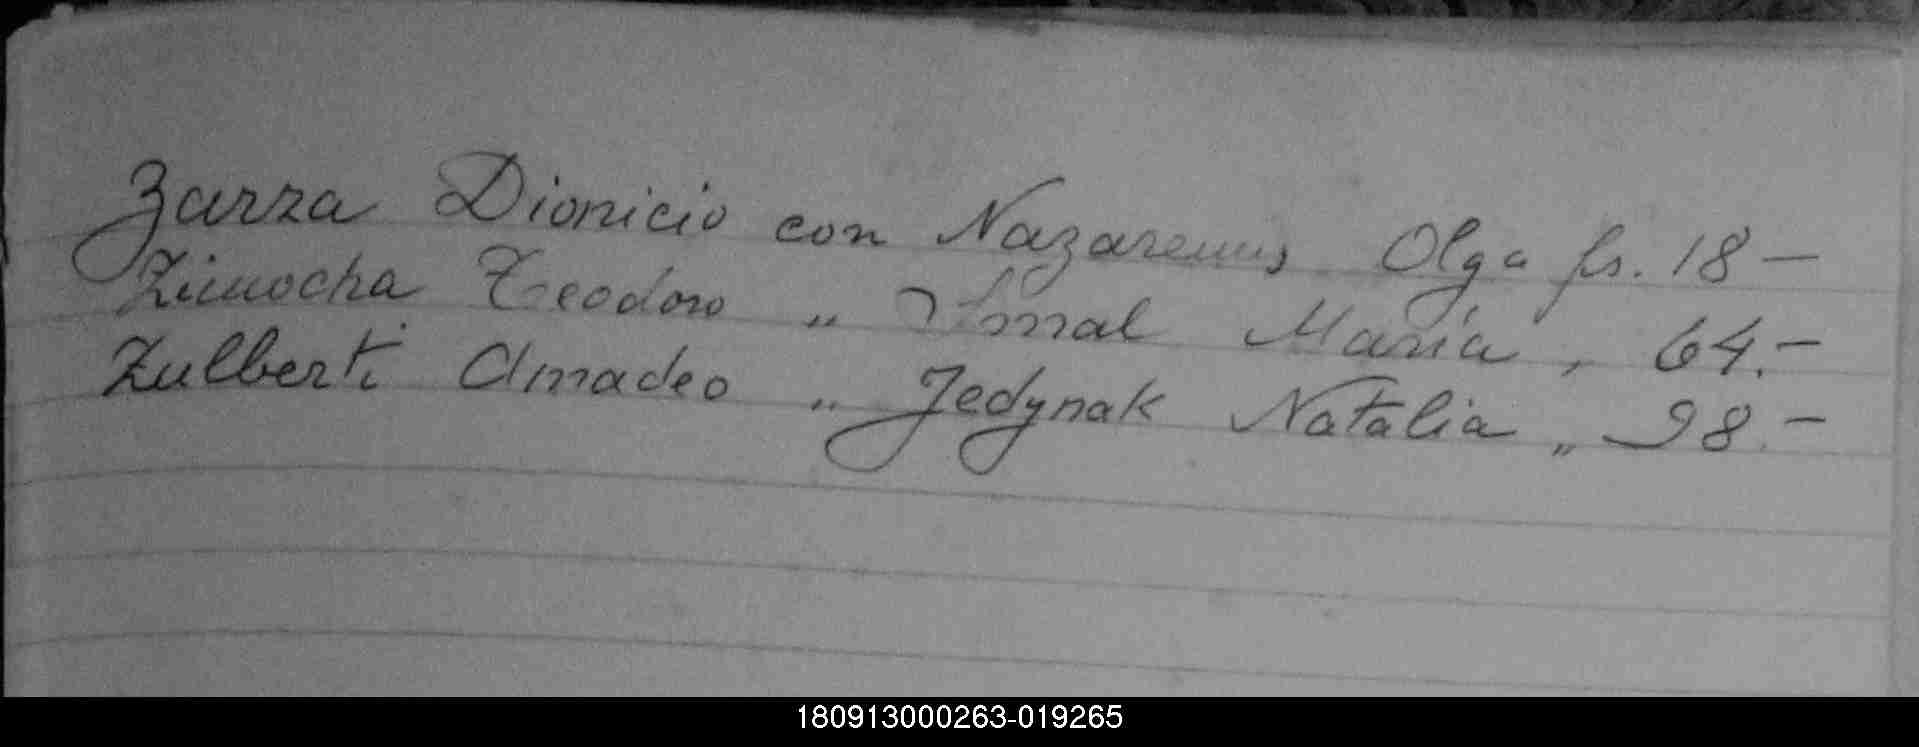 Zarza Dionicio con Nazarenus Olga fs. 18 —
Zimocha Teodoro „ Smal María „ 64.—
Zulberti Amadeo „ Jedynak Natalia „ 98.—
180913000263-019265